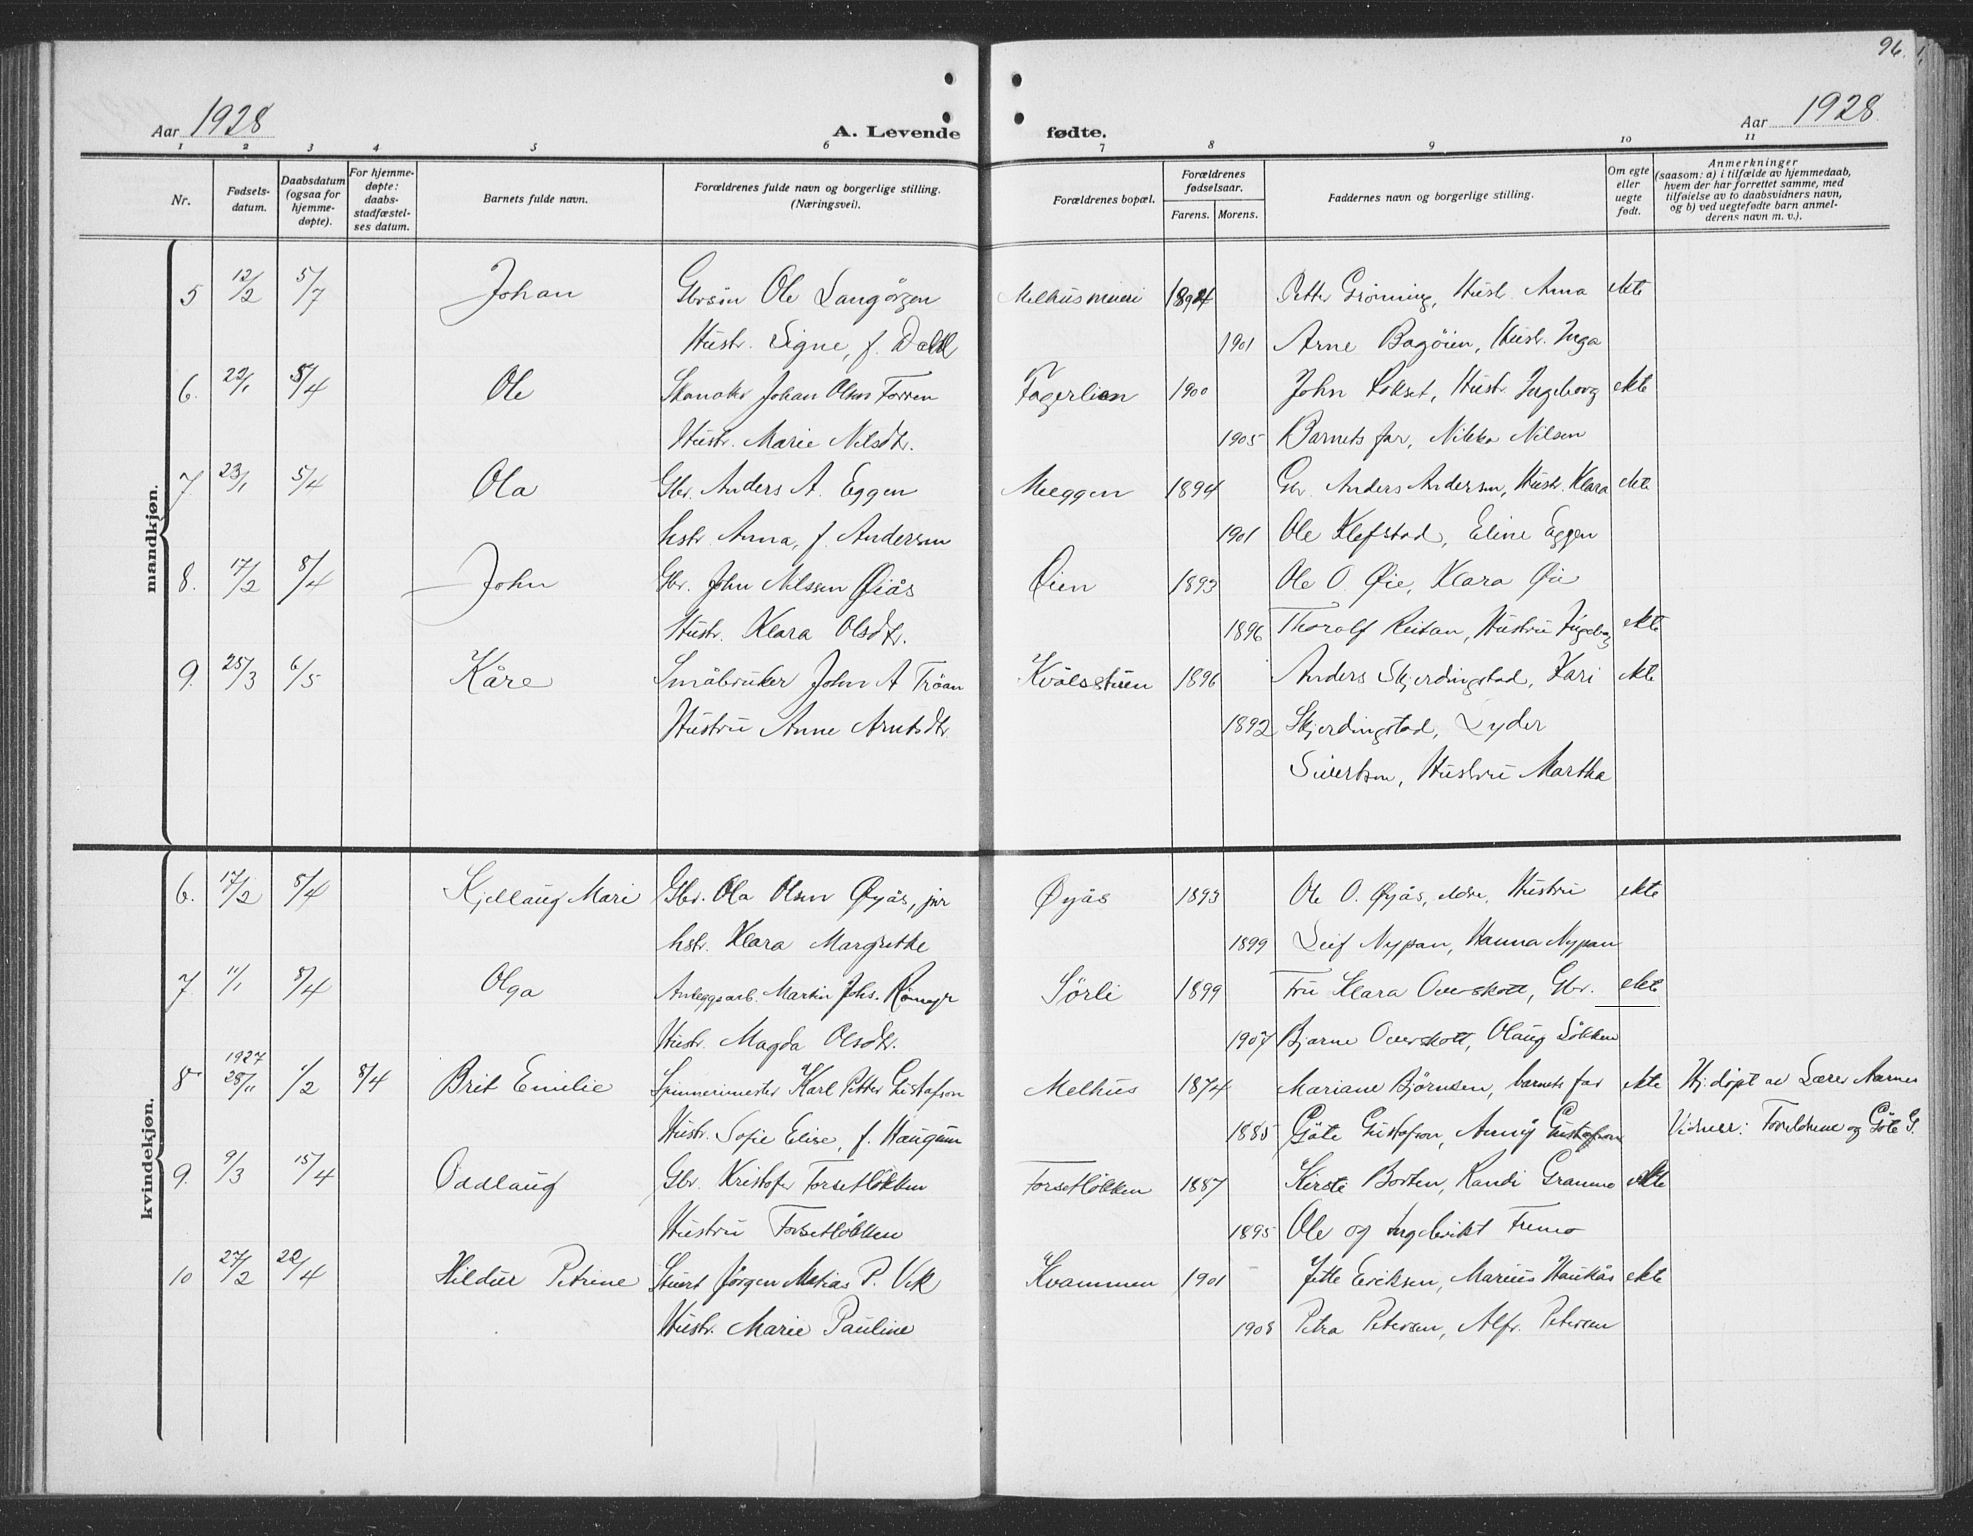 96.
Aar 1928 A. Levende fødte. Aar 1928.
1 2 3 4 5 6 7 8 9 10 11
Nr. Fødsels-datum. Daabsdatum (ogsaa for hjemme-døpte). For hjemme-døpte: daabs-stadfæstel-ses datum. Barnets fulde navn. Forældrenes fulde navn og borgerlige stilling. (Næringsvei). Forældrenes bopæl. Forældrenes fødselsaar. Farens. Morens. Faddernes navn og borgerlige stilling. Om egte eller uegte født. Anmerkninger (saasom: a) i tilfælde av hjemmedaab, hvem der har forrettet samme, med tilføielse av to daabsvidners navn, og b) ved uegtefødte barn anmel-derens navn m. v.).
mandkjøn.
5 12/2 5/7 Johan Gbrsøn Ole Langörgen Melhus mieri 1894 Petter Grønning, Hust. Anna ekte
Hustr. Signe, f. Dahl 1901 Arne Bagöien, Hustr. Inga
6. 22/1 5/4 Ole Johan Olsen Forren Fagerlien 1900 John Lokset, Hustr. Ingeborg ekte
Hustr. Marie Nilsdtr. 1905 Barnets far, Nikka Nilsen
7 23/1 5/4 Ola Gbr. Anders A. Eggen Meeggen 1894 Gbr. Anders Andersen, Hustr. Klara ekte
hstr. Anna, f. Andersen 1901 Ole Klefstad, Eline Eggen
8. 17/2 8/4 John Gbr. John Nilssen Øiås Øien 1893 Ole O. Øie, Klara Øie
Hustr. Klara Olsdtr. 1896 Thoralf Reitan, Hustru Ingeborg ekte
9. 25/3 6/5 Kåre Småbruker John A Tröan Kvålsstuen 1896 Anders Skjerdingstad, Kari ekte
Hustru Anne Arntsdtr 1892 Skjerdingstad, Lyder
Sivertsen, Hustru Martha
kvindekjøn.
6. 17/2 8/4 Kjellaug Mari Gbr. Ola Olsen Øyås, jnr Øyås 1893 Ole O. Øyås, eldre, Hustru ekte
hstr. Klara Margrethe 1899 Leif Nypan, Hanna Nypan
7 11/1 8/4 Olga Anleggsarb. Martin Johs. Sörli 1899 Fru Klara Overskott, Gbr. ekte
Hustr. Magda Olsdtr. 1907 Bjarne Overskott, Olaug Lökken
8 1927 28/11 1/2 8/4 Brit Emilie Spinnerimester Karl Petter Gustafson Melhus 1874 Mariane Björnsen, barnets far ekte Hj. döpt av Lærer Aarnes
Hustr. Sofie Elise, f. Haugum 1885 Göte Gustafson, Anny Gustafson Vidner: Foreldrene og Göte G.
9. 9/3 15/4 Oddlaug Gbr. Kristofer Forsetlökken Forsetlökken 1887 Kirste Borten, Randi Gramno ekte
Hustru Forsetlökken 1895 Ole og Ingebrikt Fremo
10 27/2 22/4 Hildur Petrine Stuert Jörgen Matias P. Vik Kvammen 1901 Jette Eriksen, Marius Haukås ekte
Hustr. Marie Pauline 1908 Petra Petersen, Alfr. Petersen